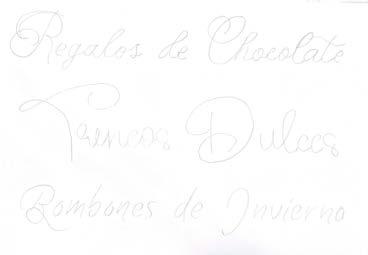 Regalos de Chocolate
Trencos Dulces
Bombones de Invierno